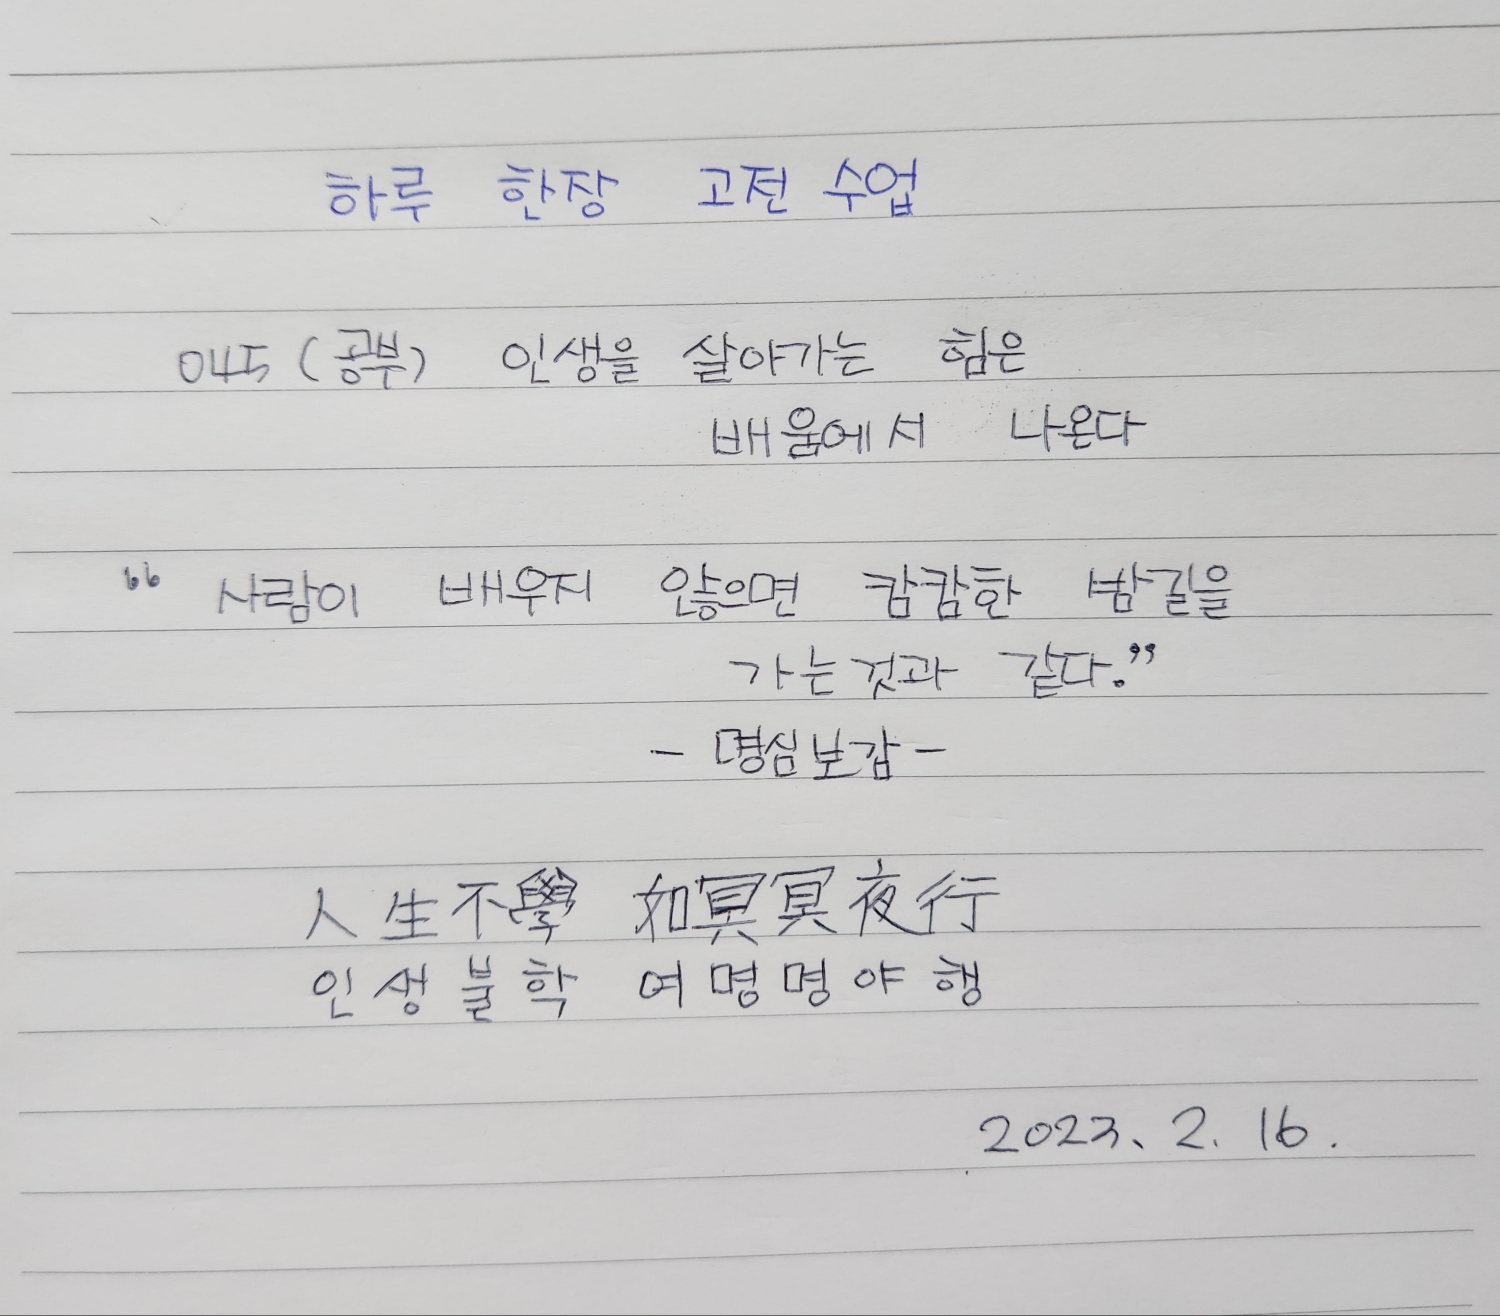 하루 한장 고전 수업
045 (공부) 인생을 살아가는 힘은
배움에서 나온다
“ 사람이 배우지 않으면 캄캄한 밤길을
가는것과 같다.”
- 명심보감 -
人生不學 如冥冥夜行
인생불학 여명명야행
2023. 2. 16.